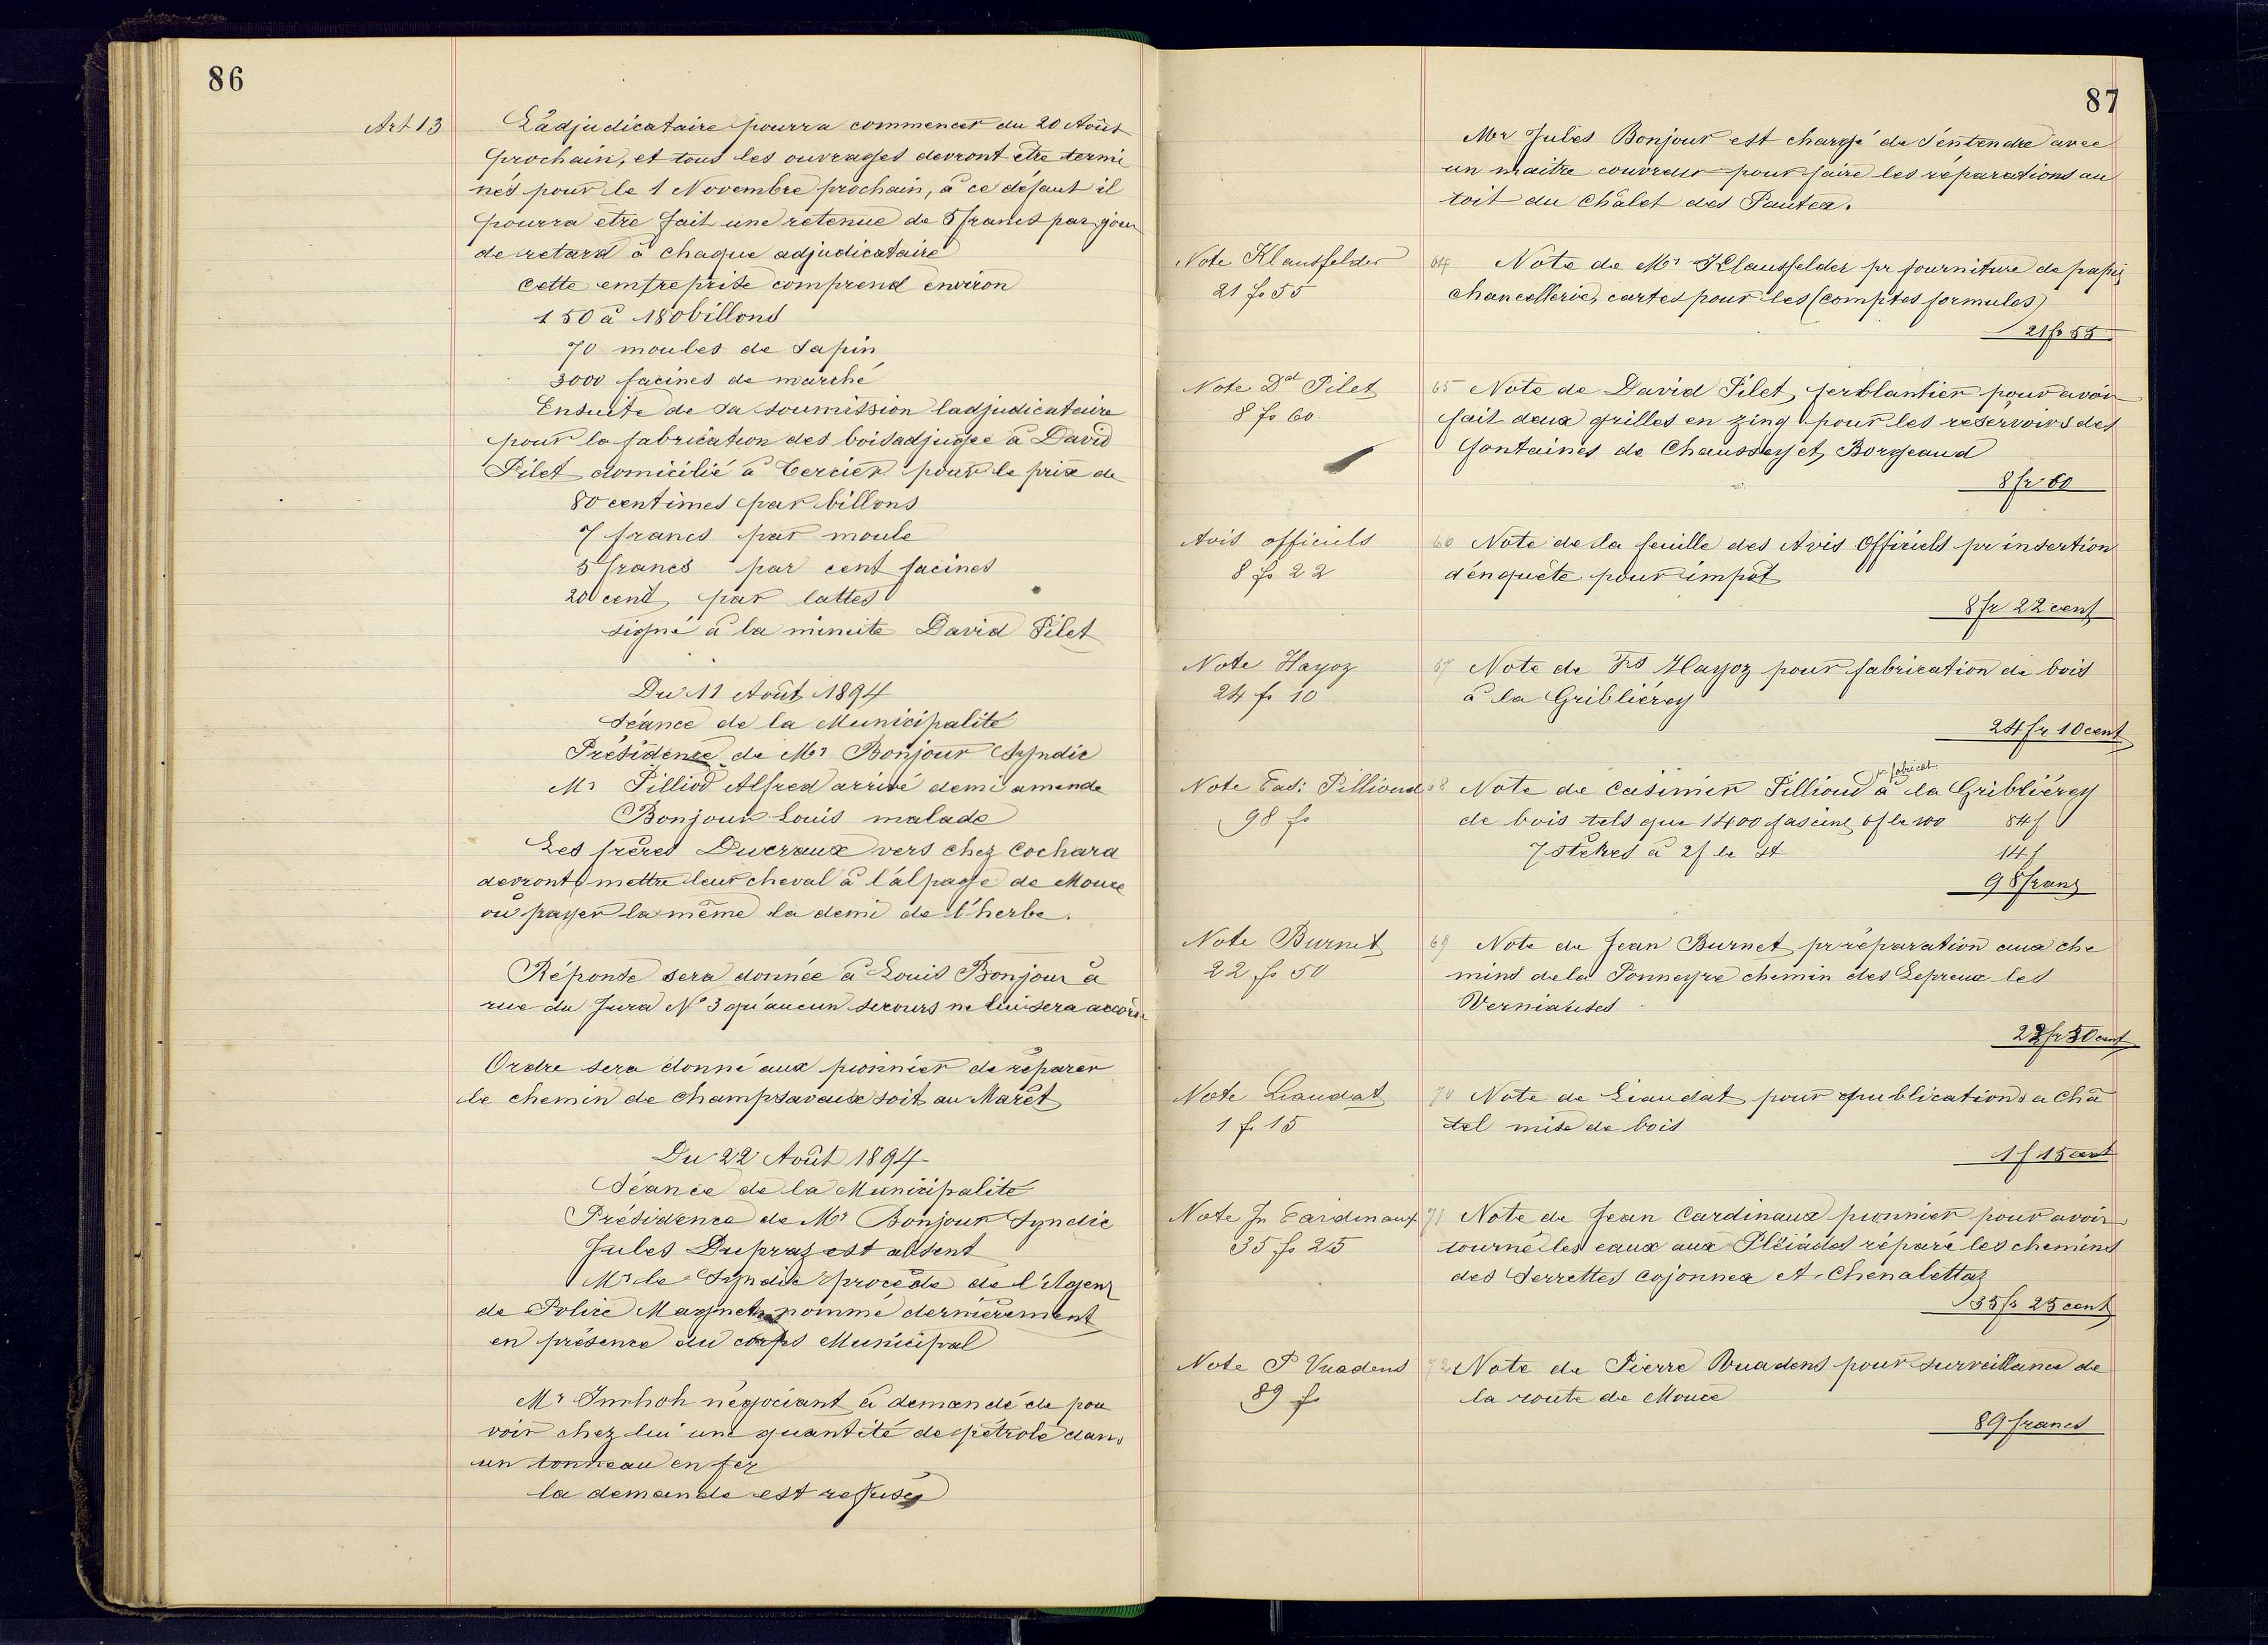 86
Art 13
L'adjudicataire pourra commencer du 20 Août
prochain, et tous les ouvrages devront être termi
nés pour le 1 Novembre prochain, à ce défaut il
pourra être fait une retenue de 5 francs par jour
de retard à chaque adjudicataire
Cette entreprise comprend environ
150 à 180 billons
70 moules de sapin
3000 facines de marché
Ensuite de sa soumission l'adjudicataire
pour la fabrication des bois adjugée à David
Pilet domicilié à Cercier pour le prix de
80 centimes par billons
7 francs par moule
5 francs par cent facines
20 cent par lattes
signé à la minute David Pilet
Du 11 Août 1894
Séance de la Municipalité
Présidence de Mr Bonjour Syndic
Mr Pilliod Alfred arrivé demi amende
Bonjour Louis malade
Les frères Ducraux vers chez Cochard
devront mettre leur cheval à l'alpage de Mouce
ou payer la même la demi de l'herbe.
Réponse sera donnée à Louis Bonjour à
rue du Jura No 3 qu'aucun secours ne lui sera accordé
Ordre sera donné aux pionnier de réparer
le chemin de Champsavaux soit au Marêt
Du 22 Août 1894
Séance de la Municipalité
Présidence de Mr Bonjour Syndic
Jules Dupraz est absent
Mr le Syndic procède de l'Agent
de Police Magnet nommé dernièrement
en présence du corps Municipal
Mr Imhoh négociant à demandé de pou
voir chez lui une quantité de pétrole dans
un tonneau en fer
la demande est refusée
87
Mr Jules Bonjour est chargé de s'entendre avec
un maitre couvreur pour faire les réparations au
toit du Châlet des Pautex.
Note Klausfelder
21 fr 55
64 Note de Mr Klausfelder pr fourniture de papier
chancellerie, cartes pour les (comptes formules)
21 fr 55
Note Dd Pilet
8 fr 60
65 Note de David Pilet, ferblantier pour avoir
fait deux grilles en zing pour les reservoirs des
fontaines de Chaussey et Borgeaud
8 fr 60
Avis officiels
8 fr 22
66 Note de la feuille des Avis Officiels pr insertion
d'enquête pour impôt
8 fr 22 cent
Note Hayoz
24 fr 10
67 Note de Frs Hayoz pour fabrication de bois
à la Gribliérey
24 fr 10 cent
Note Casi: Pillioud
98 fr
68 Note de Casimir Pillioud pr fabricat. à la Gribliérey
de bois tels que 1400 fascine 6f le 100 84 f
7 stères à 2f le St 14 f
98 franz
Note Burnet
22 fr 50
69 Note de Jean Burnet pr réparation aux che
mins de la Ponneyre chemin des Lepreux les
Verniauses
22 fr 50 cent
Note Liaudat
1 fr 15
70 Note de Liaudat pour publications a Châ
tel mise de bois
1 f 15 cent
Note Jn Cardinaux
35 fr 25
71 Note de Jean Cardinaux pionnier pour avoir
tourné les eaux aux Pléiades réparé les chemins
des Serrettes Cojonnex et Chenalettaz
35 fr 25 cent
Note P Vuadens
89 fr
72 Note de Pierre Vuadens pour surveillance de
la route de Mouce
89 francs